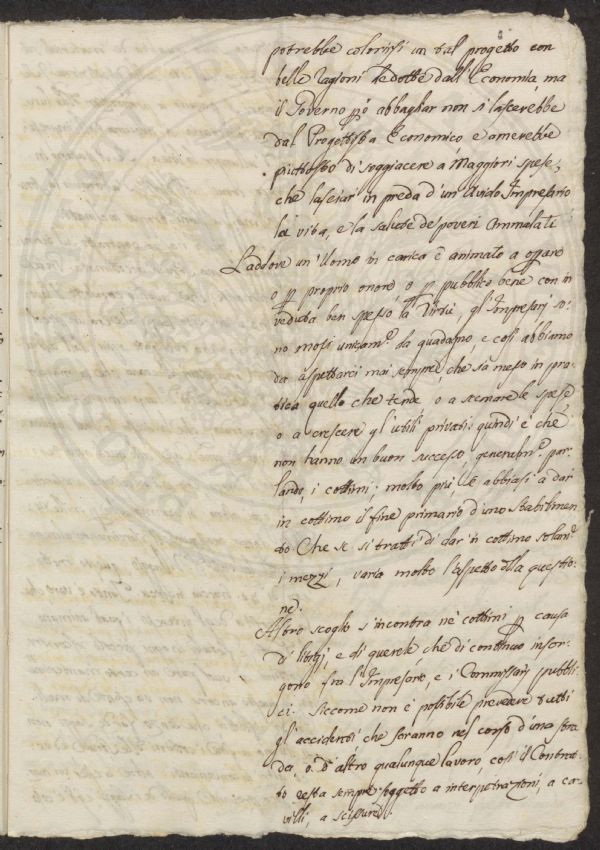 potrebbe colorirsi un tal progetto con
belle ragioni dedotte dall'Economia, ma
il Governo però abbagliar non si lascerebbe
dal Progettista Economico e amerebbe
piuttosto di soggiacere a Maggiori spese,
che lasciar in preda d'un Avido Impresario
la vita, e la salute de' poveri Ammalati
Laddove un Uomo in carica è animato a oprare
o p proprio onore o p pubblico bene con in
veduta ben spesso la Virtù, gl'Impresarj so-
no mossi unicam.e da guadagno, e così abbiamo
da aspettarci mai sempre, che sia messo in pra-
tica quello che tende o a scemare le spese
o a crescere gl'utili privati: quindi è che
non hanno un buon successo generalm.e par-
lando, i cottimi; molto più se abbiasi a dar
in cottimo il fine primario d'uno Stabilimen
to Che se si tratti di dar in cottimo solam.e
i mezzi, varia molto l'aspetto della questio-
ne.
Altro scoglio s'incontra ne' cottimi p causa
di litigj, e di querele che di continuo insor-
gono fra l'Impresario, e i Commissarj pubbli-
ci. Siccome non è possibile prevedere tutti
gl'accidenti che saranno nel corso d'una stra
da, o d'altro qualunque lavoro, così il Contrat-
to resta sempre soggetto a interpetrazioni, a ca-
villi, a scissure.